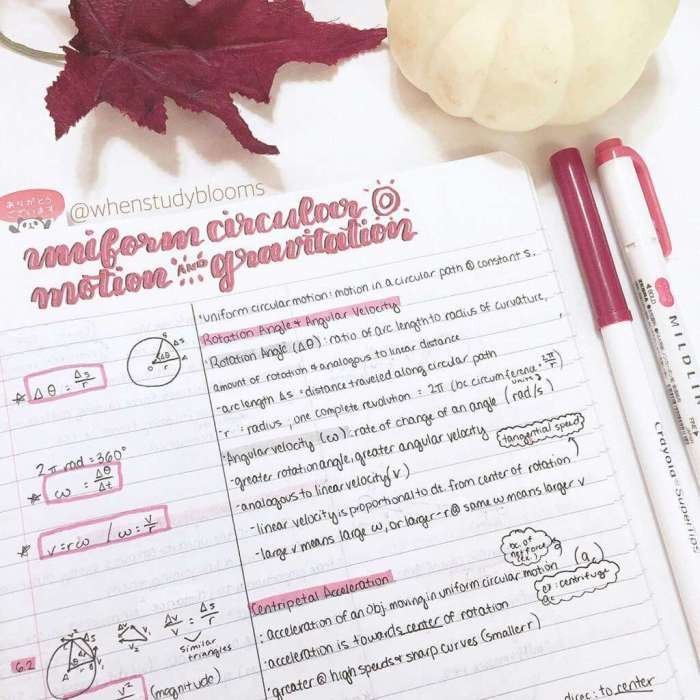 ありがとう
ございます
@whenstudyblooms
uniform circular
motion AND gravitation
·uniform circular motion: motion in a circular path @ constant s.
Rotation Angle & Angular Velocity
Rotation Angle (Δθ): ratio of arc length to radius of curvature,
amount of rotation & analogous to linear distance
-arc length Δs = distance traveled along circular path
-r = radius, one complete revolution = 2π (bc circumference = 2π/r)
·Angular velocity (ω): rate of change of an angle (rad/s)
units
-greater rotation angle, greater angular velocity
tangential speed
-analogous to linear velocity (v)
-linear velocity is proportional to dt. from center of rotation
-large v means large ω, or larger-r @ same ω means larger v
Δθ = Δs/r
Δs
Δθ
r
2π rad = 360°
ω = Δθ/Δt
v = rω / ω = v/r
Centripetal Acceleration
: acceleration of an obj moving in uniform circular motion (ac)
bc of
net force
ex: centrifuge
-acceleration is towards center of rotation
-greater @ high speeds & sharp curves (smaller r)
direc: to center
6.2
Δv/v = Δs/r
similar
triangles
v²
(magnitude)
MILDLIN
Crayola SuperTips